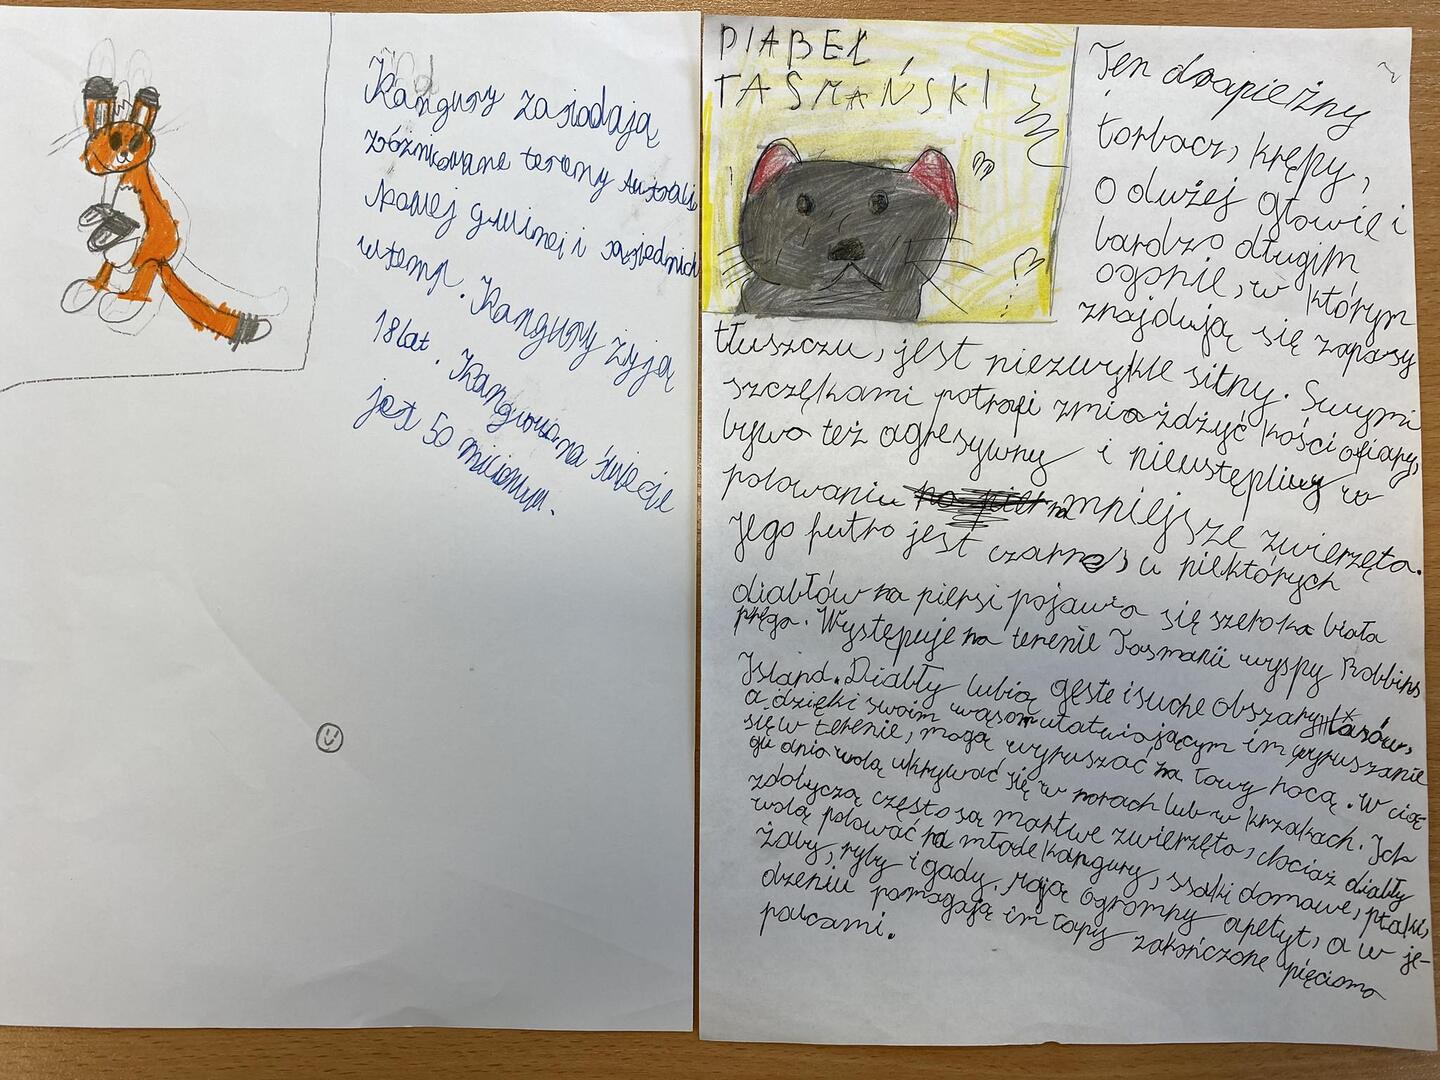 Kangury zasiadają
zróżnicowane tereny Australi
Nowej gwinej i sąsiednich
w temp. Kangury żyją
18 lat. Kangurów na świecie
jest 50 milionym.
DIABEŁ
TASMAŃSKI
Ten drapieżny
torbacz, krępy,
o dużej głowie i
bardzo długim
ogonie, w którym
znajdują się zapasy
tłuszczu, jest niezwykle silny. Swymi
szczękami potrafi zmiażdżyć kości ofiary,
bywa też agresywny i nieustępliwy w
polowaniu na mniejsze zwierzęta.
Jego futro jest czarne, u niektórych
diabłów na piersi pojawia się szeroka biała
pręga. Występuje na terenie Tasmanii wyspy Robbins
Island. Diabły lubią gęste i suche obszary lasów,
a dzięki swoim wąsom ułatwiającym im wyruszanie
się w terenie, mogą wyruszać na łowy nocą. W cią
gu dnia wolą ukrywać się w norach lub w krzakach. Ich
zdobyczą często są martwe zwierzęta, chociaż diabły
wolą polować na młode kangury, ssaki domowe, ptaki,
żaby, ryby i gady. Mają ogromny apetyt, a w je-
dzeniu pomagają im łapy zakończone pięcioma
palcami.